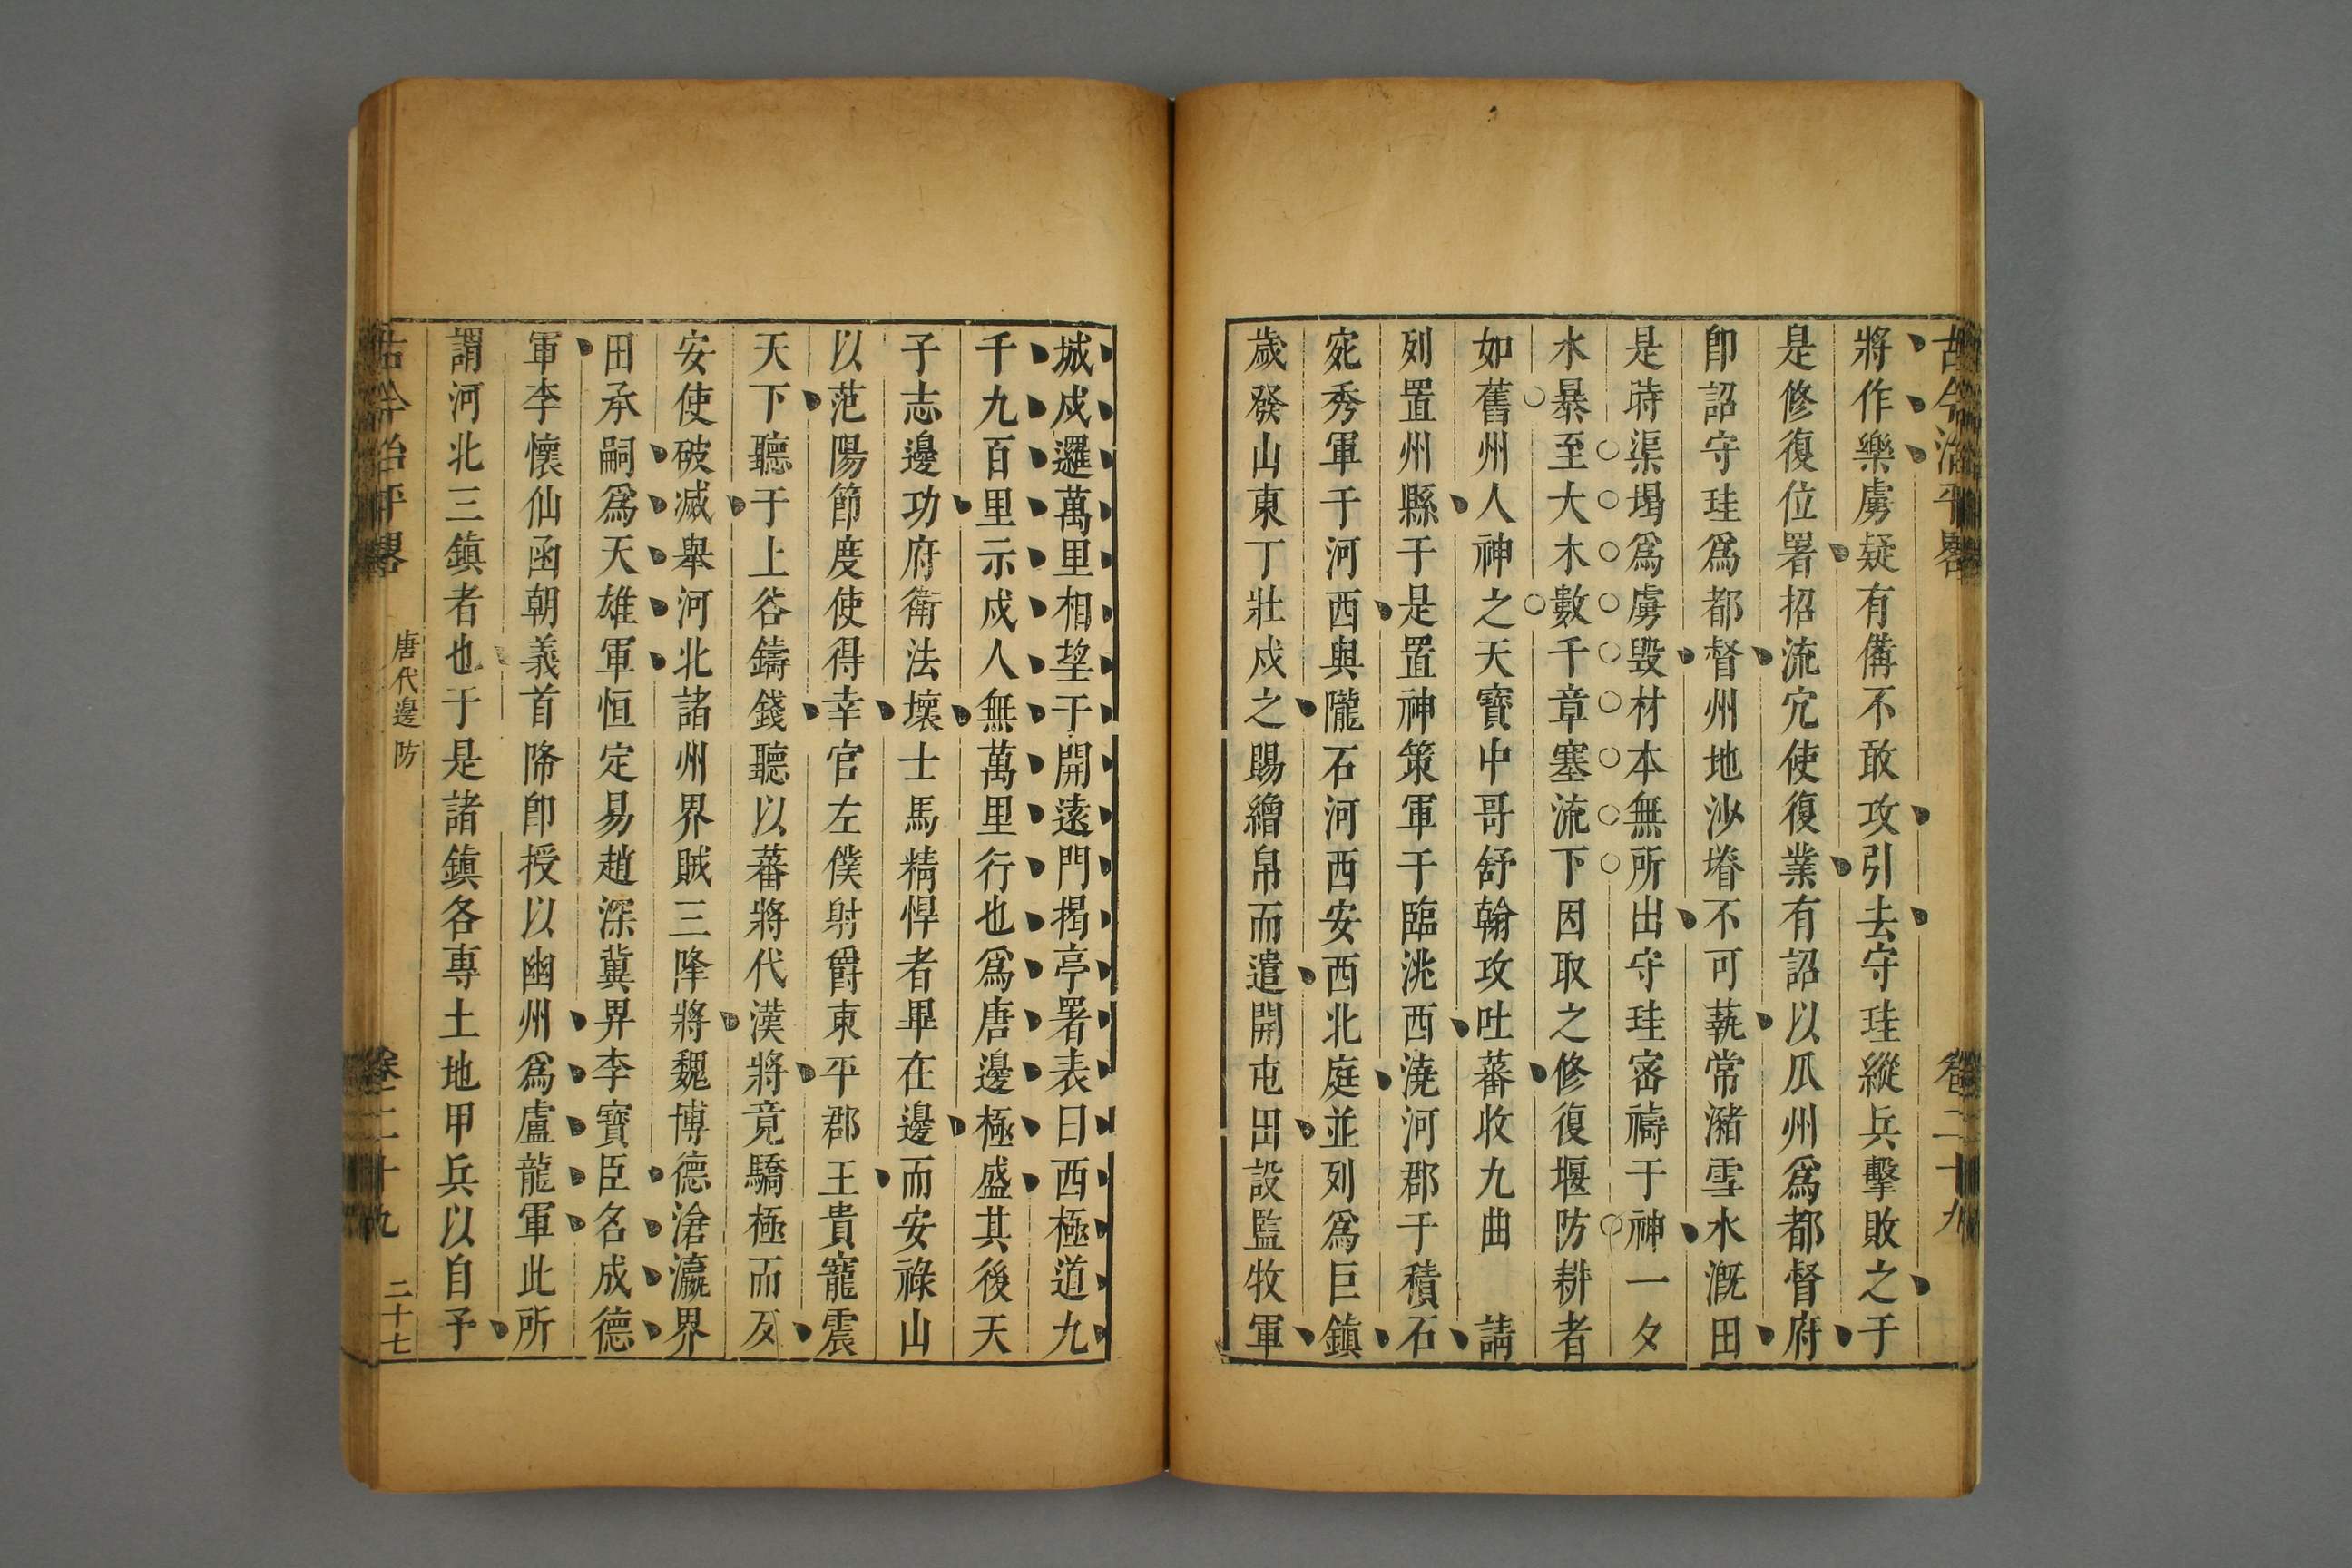 古今治平畧 卷二十九
將作樂虜疑有備不敢攻引去守珪縱兵擊敗之于
是修復位署招流冗使復業有詔以瓜州爲都督府
卽詔守珪爲都督州地沙塉不可蓺常瀦雪水漑田
是時渠堨爲虜毀材本無所出守珪密禱于神一夕
水暴至大木數千章塞流下因取之修復堰防耕者
如舊州人神之天寶中哥舒翰攻吐蕃收九曲 請
列置州縣于是置神策軍于臨洮西澆河郡于積石
宛秀軍于河西與隴石河西安西北庭並列爲巨鎮
歲發山東丁壯戍之賜繒帛而遣開屯田設監牧軍
城戍邏萬里相望于開遠門揭亭署表曰西極道九
千九百里示戍人無萬里行也爲唐邊極盛其後天
子志邊功府衛法壞士馬精悍者畢在邊而安祿山
以范陽節度使得幸官左僕射爵東平郡王貴寵震
天下聽于上谷鑄錢聽以蕃將代漢將竟驕極而反
安使破滅舉河北諸州界賊三降將魏博德滄瀛界
田承嗣爲天雄軍恒定易趙深冀界李寶臣名成德
軍李懷仙函朝義首降卽授以幽州爲盧龍軍此所
謂河北三鎮者也于是諸鎮各專土地甲兵以自予
古今治平畧 唐代邊防 卷二十九 二十七